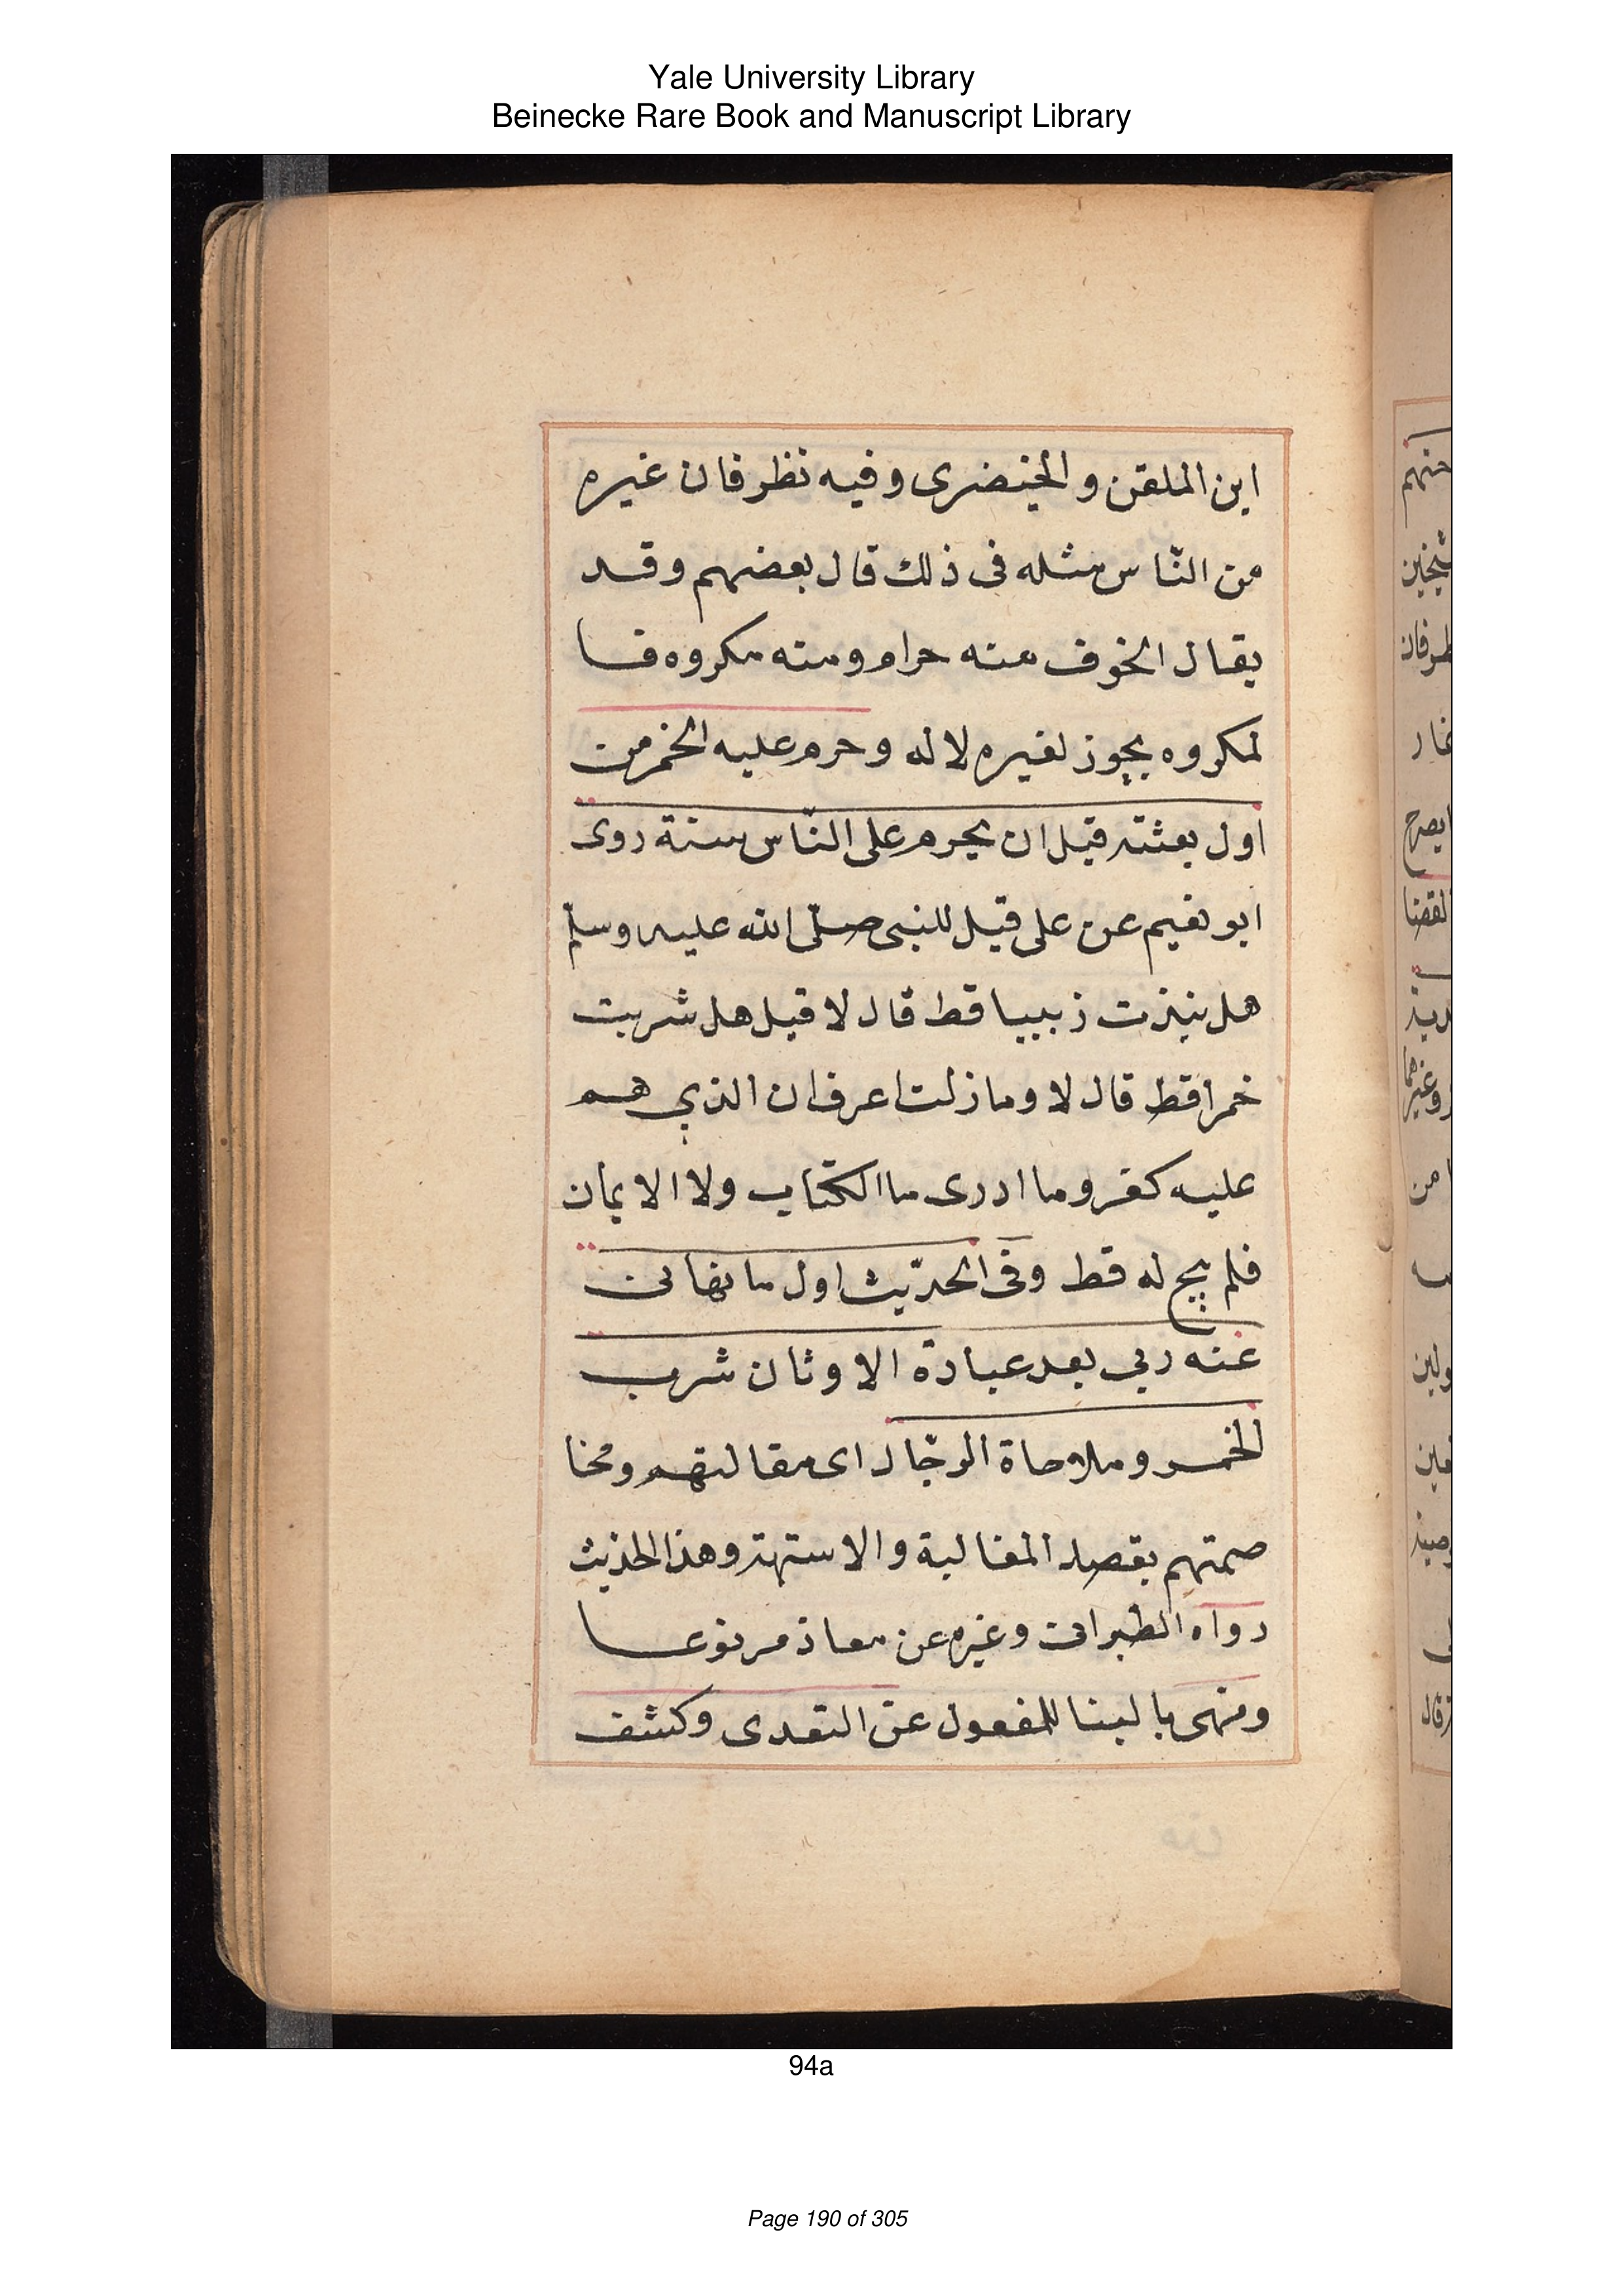 Yale University Library
Beinecke Rare Book and Manuscript Library
ابن الملقن والخيضرى وفيه نظر فان غيره
من النّاس مثله فى ذلك قال بعضهم وقد
يقال الخوف منه حرام ومنه مكروه فا
لمكروه يجوز لغيره لا له وحرم عليه الخمر من
اول بعثته قبل ان يحرم على النّاس سنة روى
ابو نعيم عن على قيل للنبى صلى الله عليه وسلم
هل نبذت زبيبا قط قال لا قيل هل شربت
خمرا قط قال لا وما زلت اعرف ان الذي هم
عليه كفر وما ادرى ما الكتاب ولا الايمان
فلم يبح له قط وفى الحديث اول ما نهانى
عنه ربي بعد عبادة الاوثان شرب
الخمر وملاحاة الرجال اى مقالتهم ومخا
صمتهم بقصد المغالبة والاستهتر وهذا الحذيث
رواه الطبرانى وغيره عن معاذ مرفوعا
ومنهى بالبنا للمفعول عن التعدى وكشف
94a
Page 190 of 305